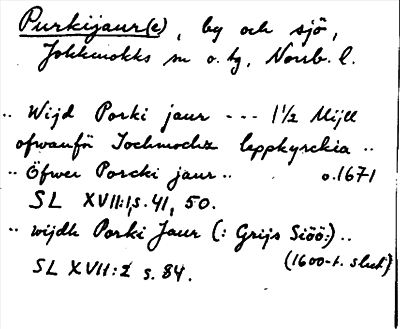 Purkijaur(e), by och sjö,
Jokkmokks sn o. tg, Norrb. l.
.. Wijd Porki jaur --- 1 1/2 Mijll
ofwanför Jochmochz lappkyrckia ..
.. Öfwer Porcki jaur .. o.1671
SL XVII:1,s.41, 50.
.. wijdh Porki Jaur (: Grijs Siöö:) ..
(1600-t. slut)
SL XVII:2 s. 84.